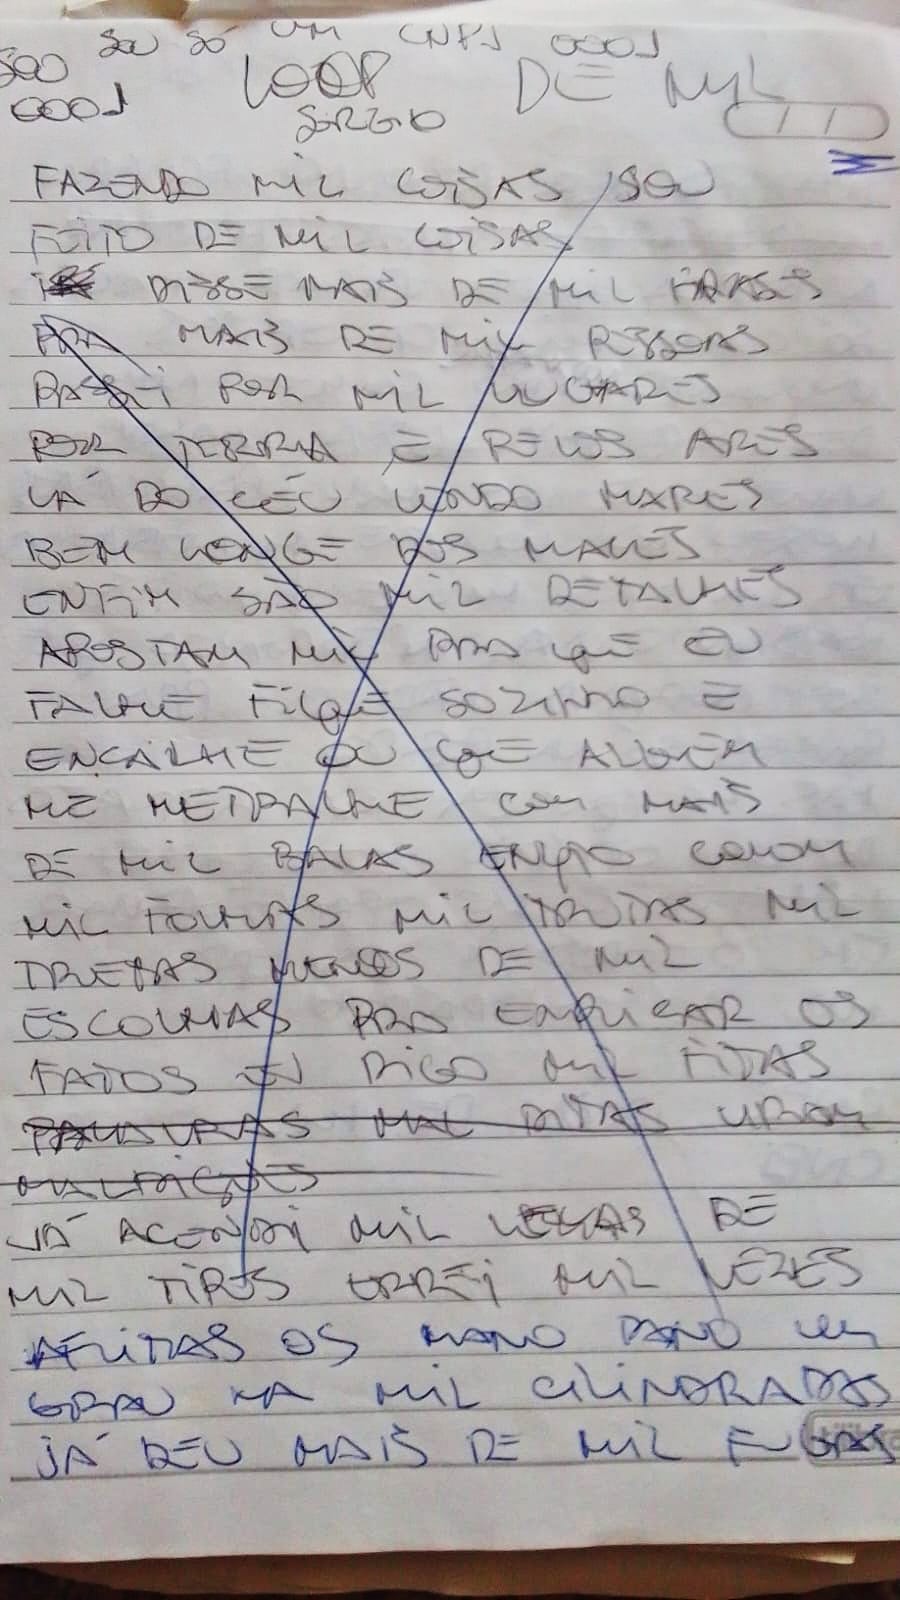 SOU SÓ UM CNPJ 0001
SOU 0001 LOOP DE MIL
SÉRGIO
FAZENDO MIL COISAS SOU
FEITO DE MIL COISAS
DISSE MAIS DE MIL FRASES
PRA MAIS DE MIL PESSOAS
PASSEI POR MIL LUGARES
POR TERRA E PELOS ARES
LÁ DO CÉU VENDO MARES
BEM LONGE DOS MALES
ENFIM SÃO MIL DETALHES
APOSTAM MIL PRA QUE EU
FALHE FIQUE SOZINHO E
ENCALHE OU QUE ALGUÉM
ME METRALHE COM MAIS
DE MIL BALAS ENQTO COLOM
MIL FOLHAS MIL TRUTAS MIL
TRETAS MENOS DE MIL
ESCOLHAS PRA EXPLICAR OS
FATOS EU DIGO MIL FITAS
PALAVRAS MAL DITAS VIRAM
MALDIÇÕES
JÁ ACENDI MIL VELAS DE
MIL TIPOS ERREI MIL VEZES
AFLITAS OS MANO DANO UM
GRAU NA MIL CILINDRADAS
JÁ DEU MAIS DE MIL FUGAS